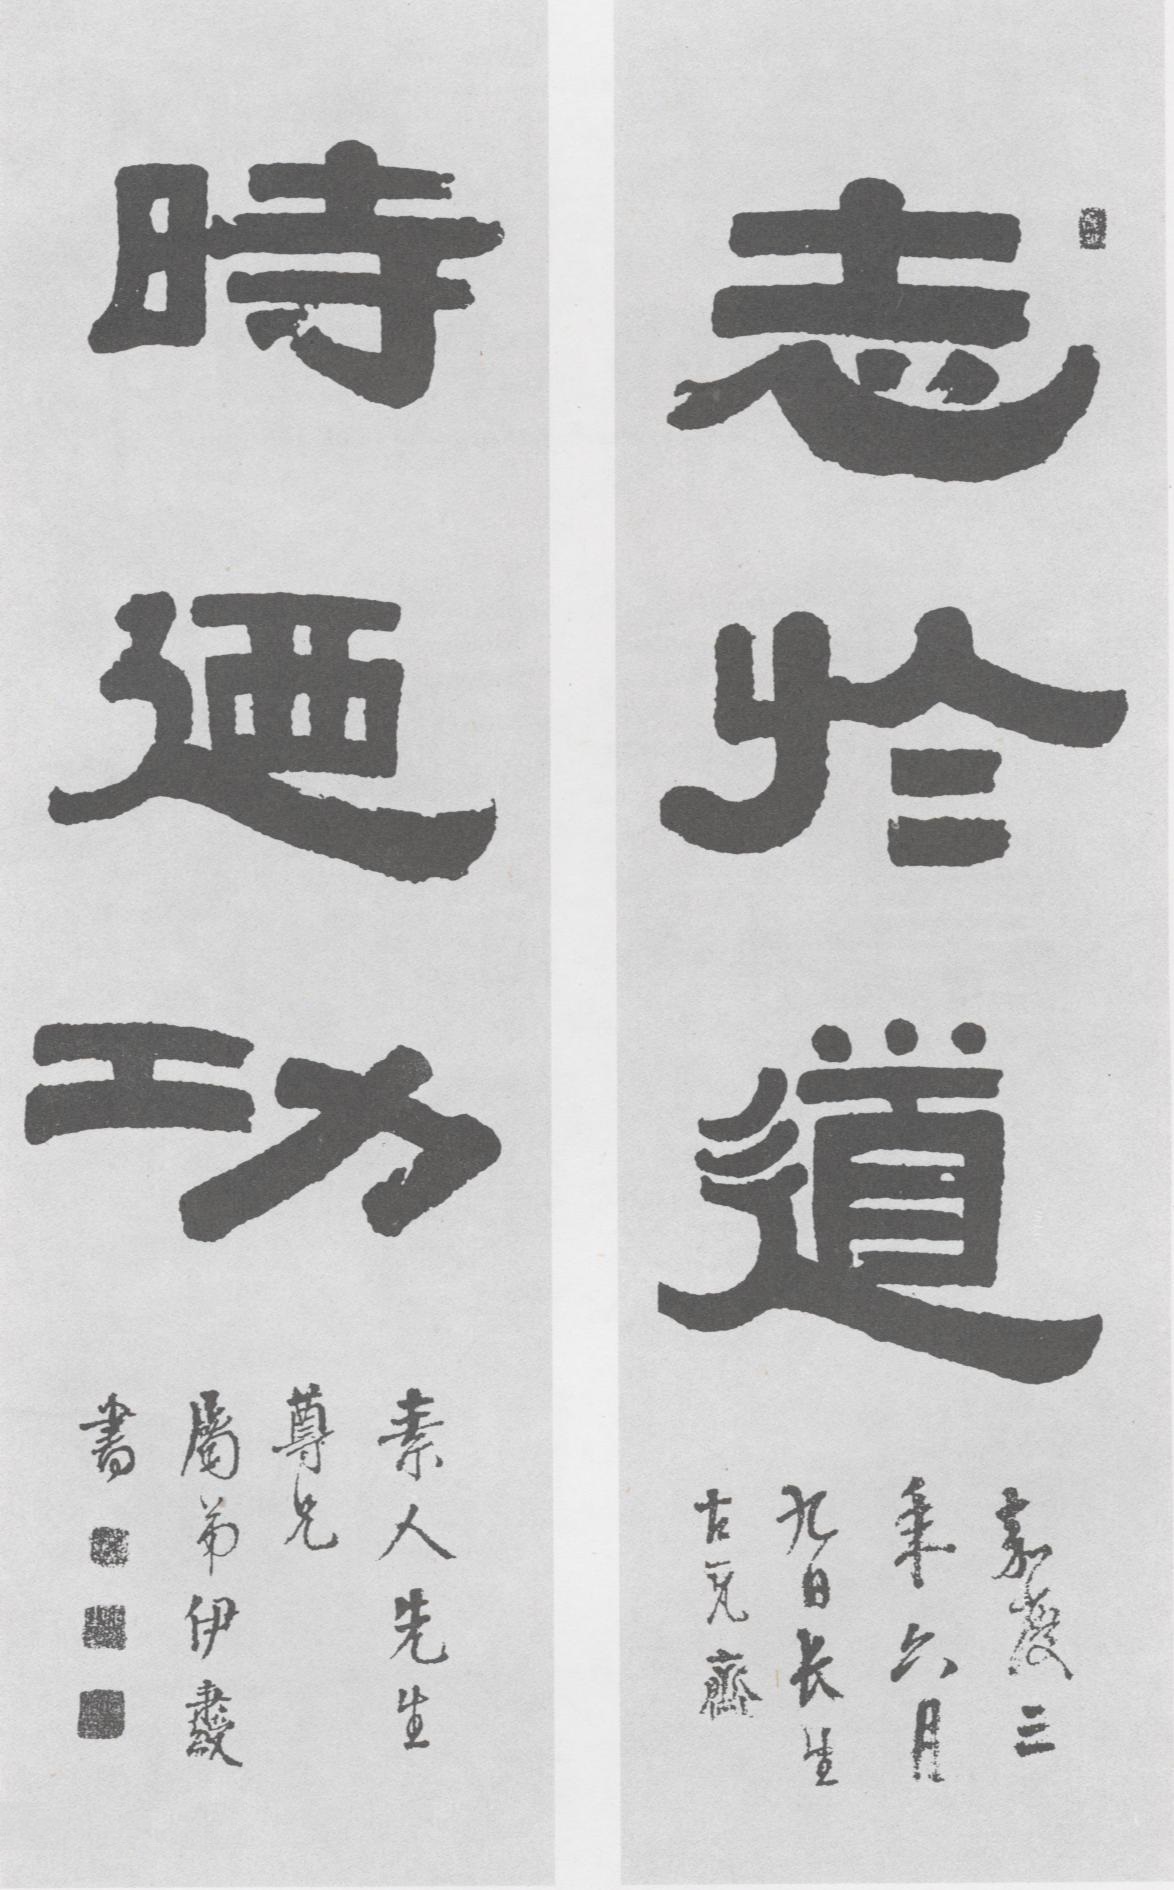 志於道
嘉慶三
秊六月
九日長生
古瓦齋
時迺功
素人先生
尊兄
屬弟伊秉綬
書